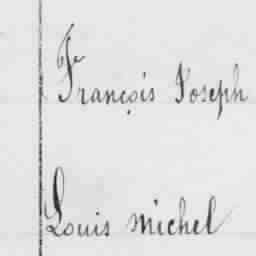 François Joseph
Louis Michel